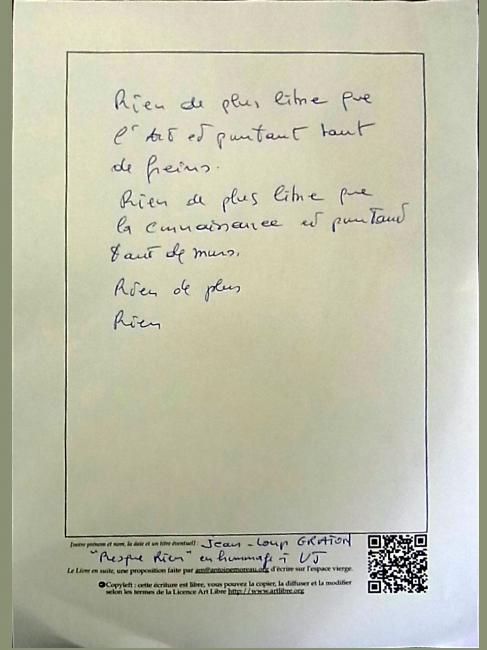 Rien de plus libre que
l'Art et pourtant tant
de freins.
Rien de plus libre que
la connaissance et pourtant
tant de murs.
Rien de plus
Rien
[votre prénom et nom, la date et un titre éventuel] : Jean-Loup GRATON
"Presque Rien" en hommage à VJ
Le Livre en suite, une proposition faite par am@antoinemoreau.org d'écrire sur l'espace vierge.
Copyleft : cette écriture est libre, vous pouvez la copier, la diffuser et la modifier
selon les termes de la Licence Art Libre http://www.artlibre.org